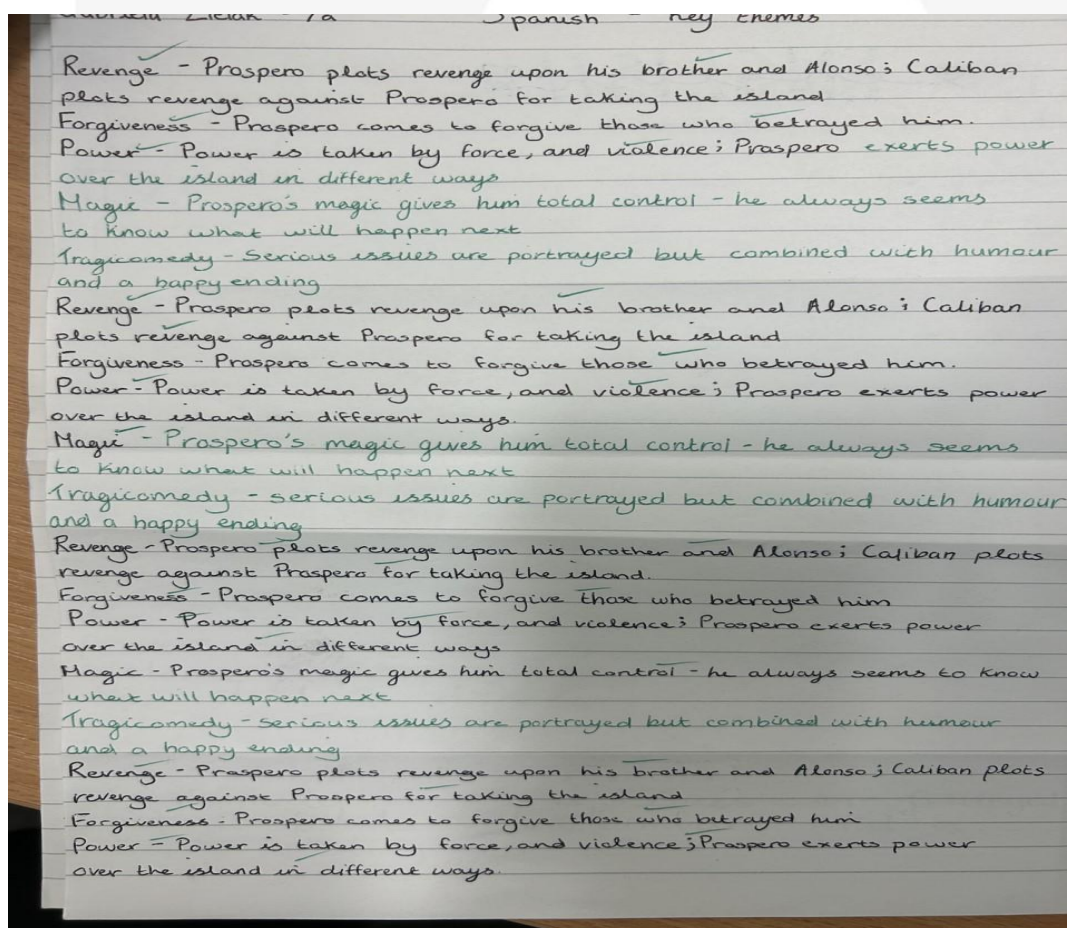 Spanish - key themes
Revenge - Prospero plots revenge upon his brother and Alonso; Caliban
plots revenge against Prospero for taking the island
Forgiveness - Prospero comes to forgive those who betrayed him.
Power - Power is taken by force, and violence; Prospero exerts power
over the island in different ways
Magic - Prospero's magic gives him total control - he always seems
to know what will happen next
Tragicomedy - Serious issues are portrayed but combined with humour
and a happy ending
Revenge - Prospero plots revenge upon his brother and Alonso; Caliban
plots revenge against Prospero for taking the island
Forgiveness - Prospero comes to forgive those who betrayed him.
Power - Power is taken by force, and violence; Prospero exerts power
over the island in different ways.
Magic - Prospero's magic gives him total control - he always seems
to know what will happen next
Tragicomedy - serious issues are portrayed but combined with humour
and a happy ending
Revenge - Prospero plots revenge upon his brother and Alonso; Caliban plots
revenge against Prospero for taking the island.
Forgiveness - Prospero comes to forgive those who betrayed him
Power - Power is taken by force, and violence; Prospero exerts power
over the island in different ways
Magic - Prospero's magic gives him total control - he always seems to know
what will happen next
Tragicomedy - serious issues are portrayed but combined with humour
and a happy ending
Revenge - Prospero plots revenge upon his brother and Alonso; Caliban plots
revenge against Prospero for taking the island
Forgiveness - Prospero comes to forgive those who betrayed him
Power - Power is taken by force, and violence; Prospero exerts power
over the island in different ways.